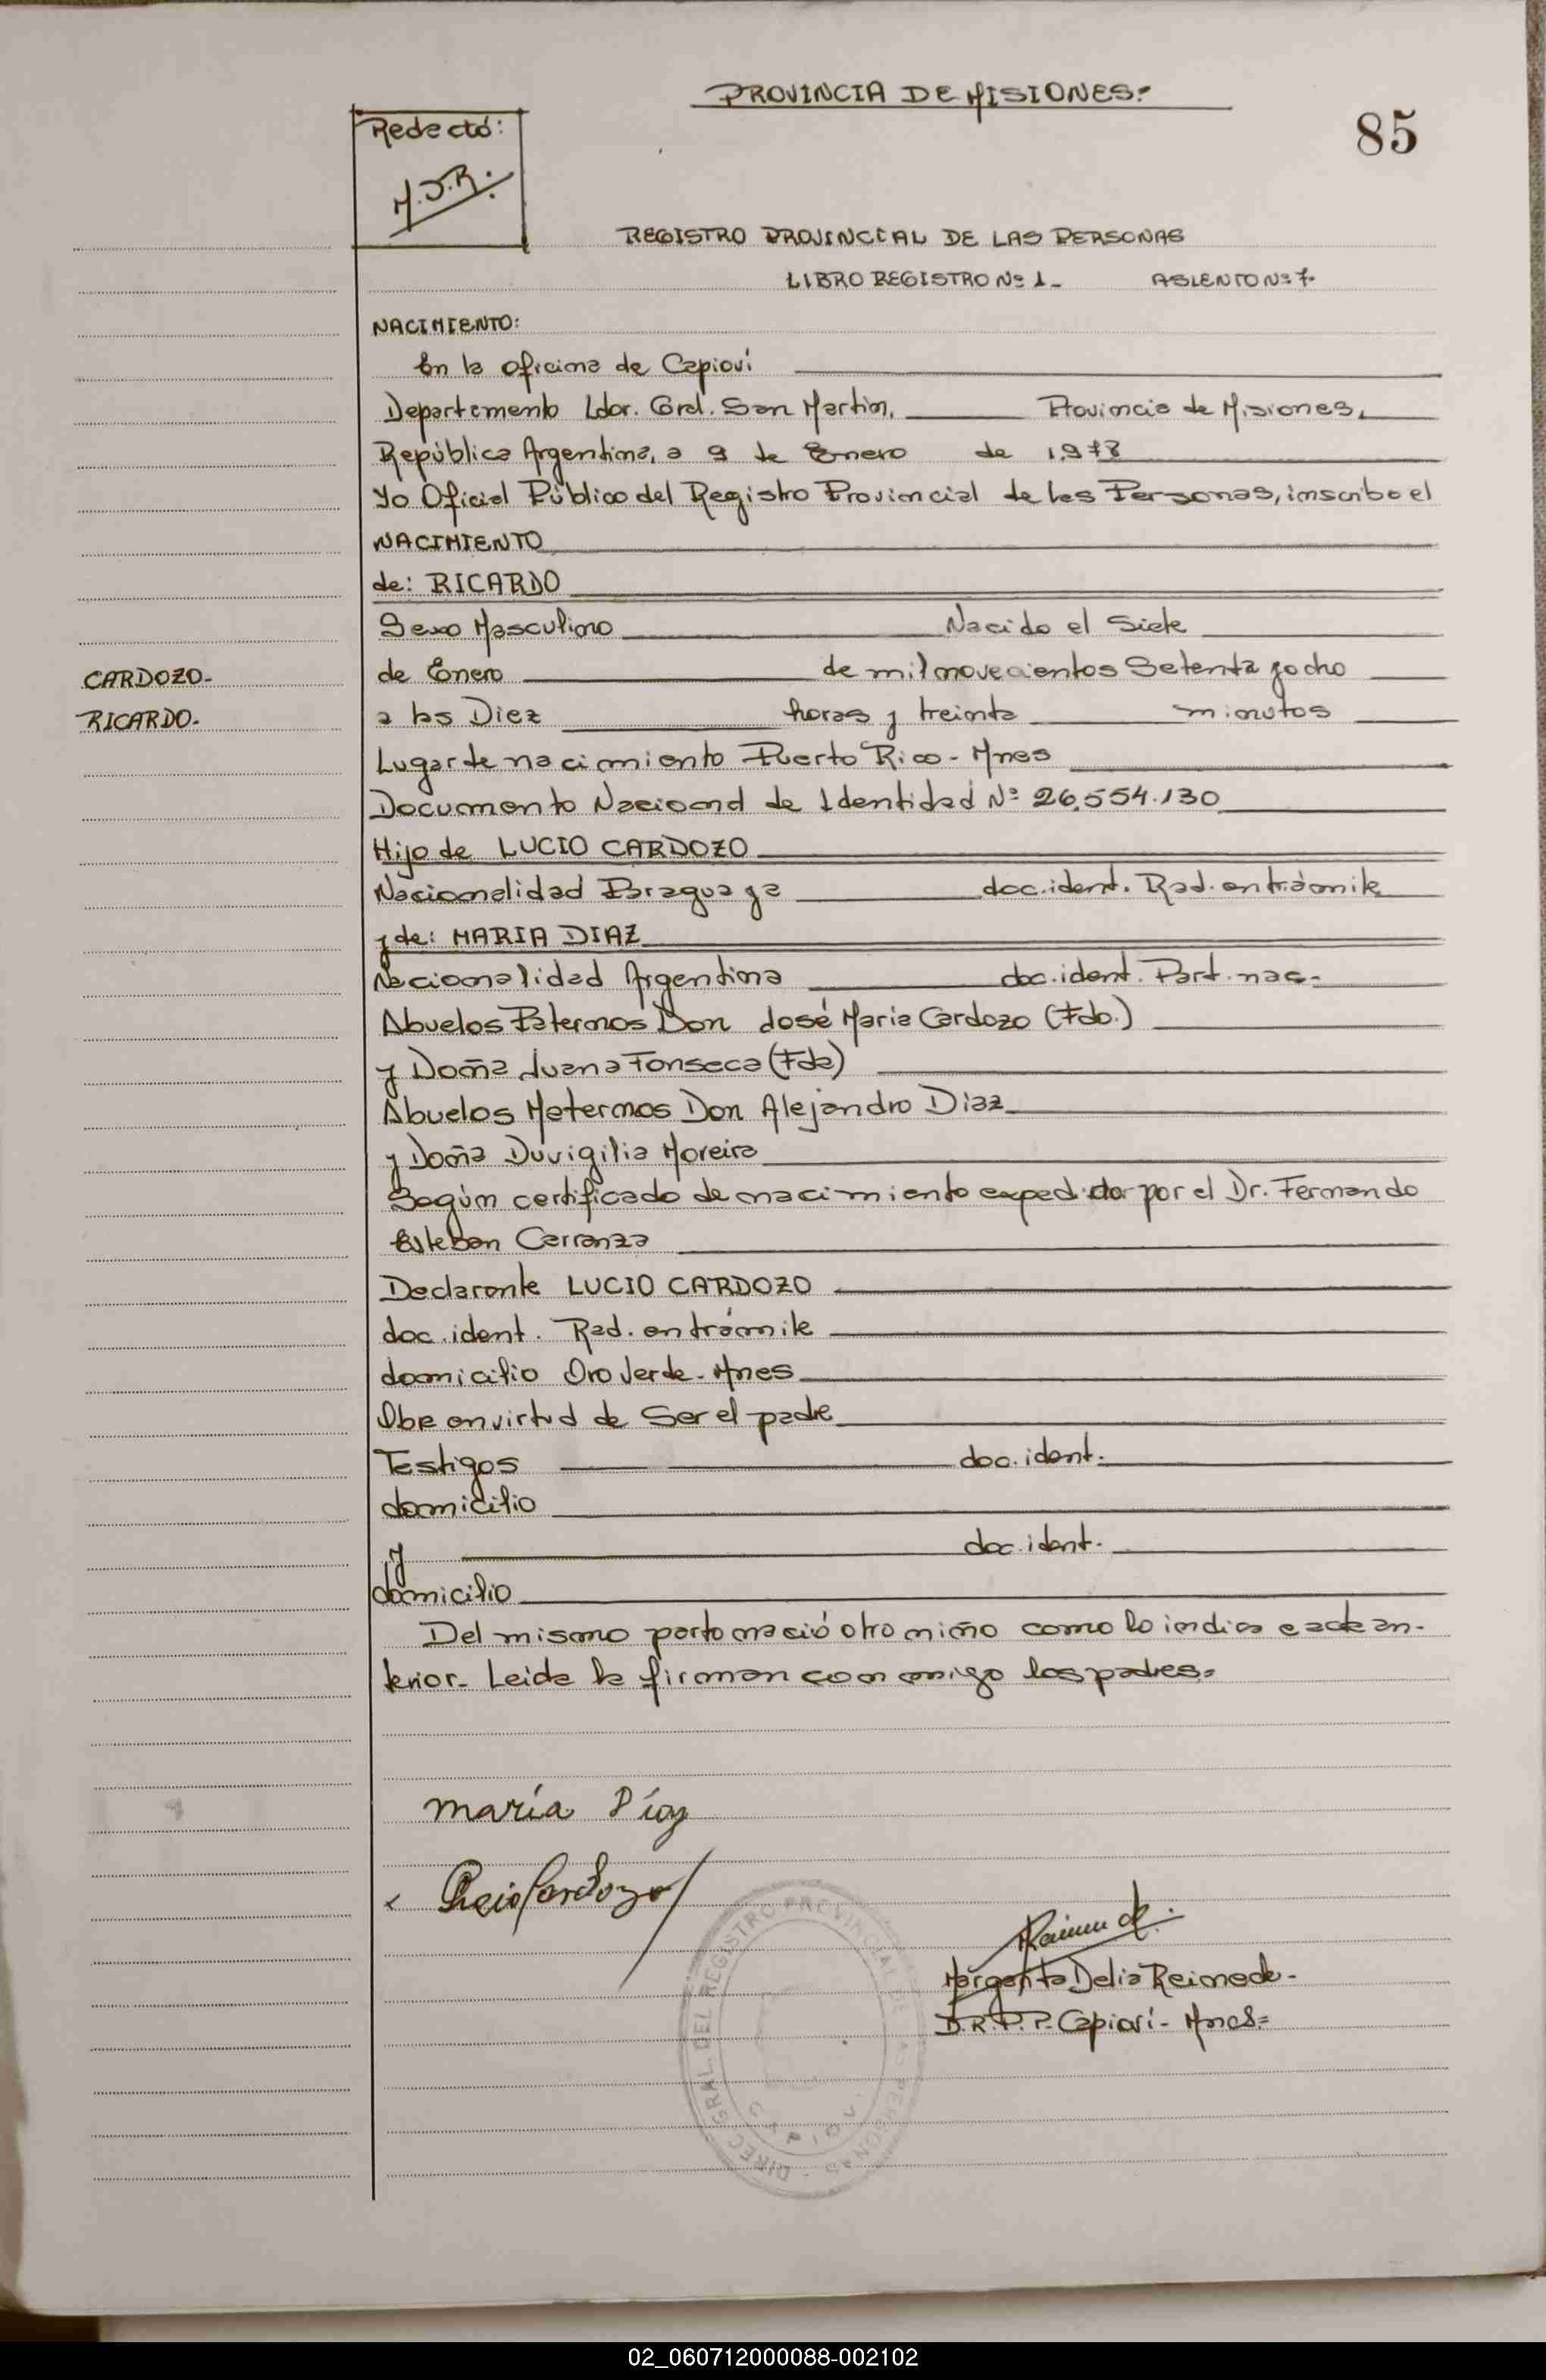 PROVINCIA DE MISIONES.-
85
Redactó:
M.J.R.
REGISTRO PROVINCIAL DE LAS PERSONAS
LIBRO REGISTRO Nº 1_ ASIENTO Nº 7.
NACIMIENTO:
En la oficina de Capioví
Departamento Ldor. Gral. San Martín, Provincia de Misiones,
República Argentina, a 9 de Enero de 1.978
Yo Oficial Público del Registro Provincial de las Personas, inscribo el
NACIMIENTO
de: RICARDO
Sexo Masculino Nacido el Siete
CARDOZO-
RICARDO-
de Enero de mil novecientos Setenta y ocho
a las Diez horas y treinta minutos
Lugar de nacimiento Puerto Rico - Mnes
Documento Nacional de Identidad Nº 26.554.130
Hijo de LUCIO CARDOZO
Nacionalidad Paraguaya doc. ident. Rad. en trámite
y de: MARIA DIAZ
Nacionalidad Argentina doc. ident. Part. nac.-
Abuelos Paternos Don José Maria Cardozo (Fdo.)
y Doña Juana Fonseca (Fda)
Abuelos Maternos Don Alejandro Diaz
y Doña Duvigilia Moreira
Según certificado de nacimiento expedido por el Dr. Fernando
Esteban Carranza
Declarante LUCIO CARDOZO
doc. ident. Rad. en trámite
domicilio Oro Verde - Mnes
Obra en virtud de Ser el padre
Testigos doc. ident.
domicilio
y doc. ident.
domicilio
Del mismo parto nació otro niño como lo indica e acta an-
terior- Leida la firman con migo los padres=
María Díaz
Lucio Cardozo
Margarita Delia Reimede-
D.R.P.P. Capioví - Mnes=
DIREC. GRAL. DEL REGISTRO PROVINCIAL DE LAS PERSONAS
CAPIOVI
02_060712000088-002102